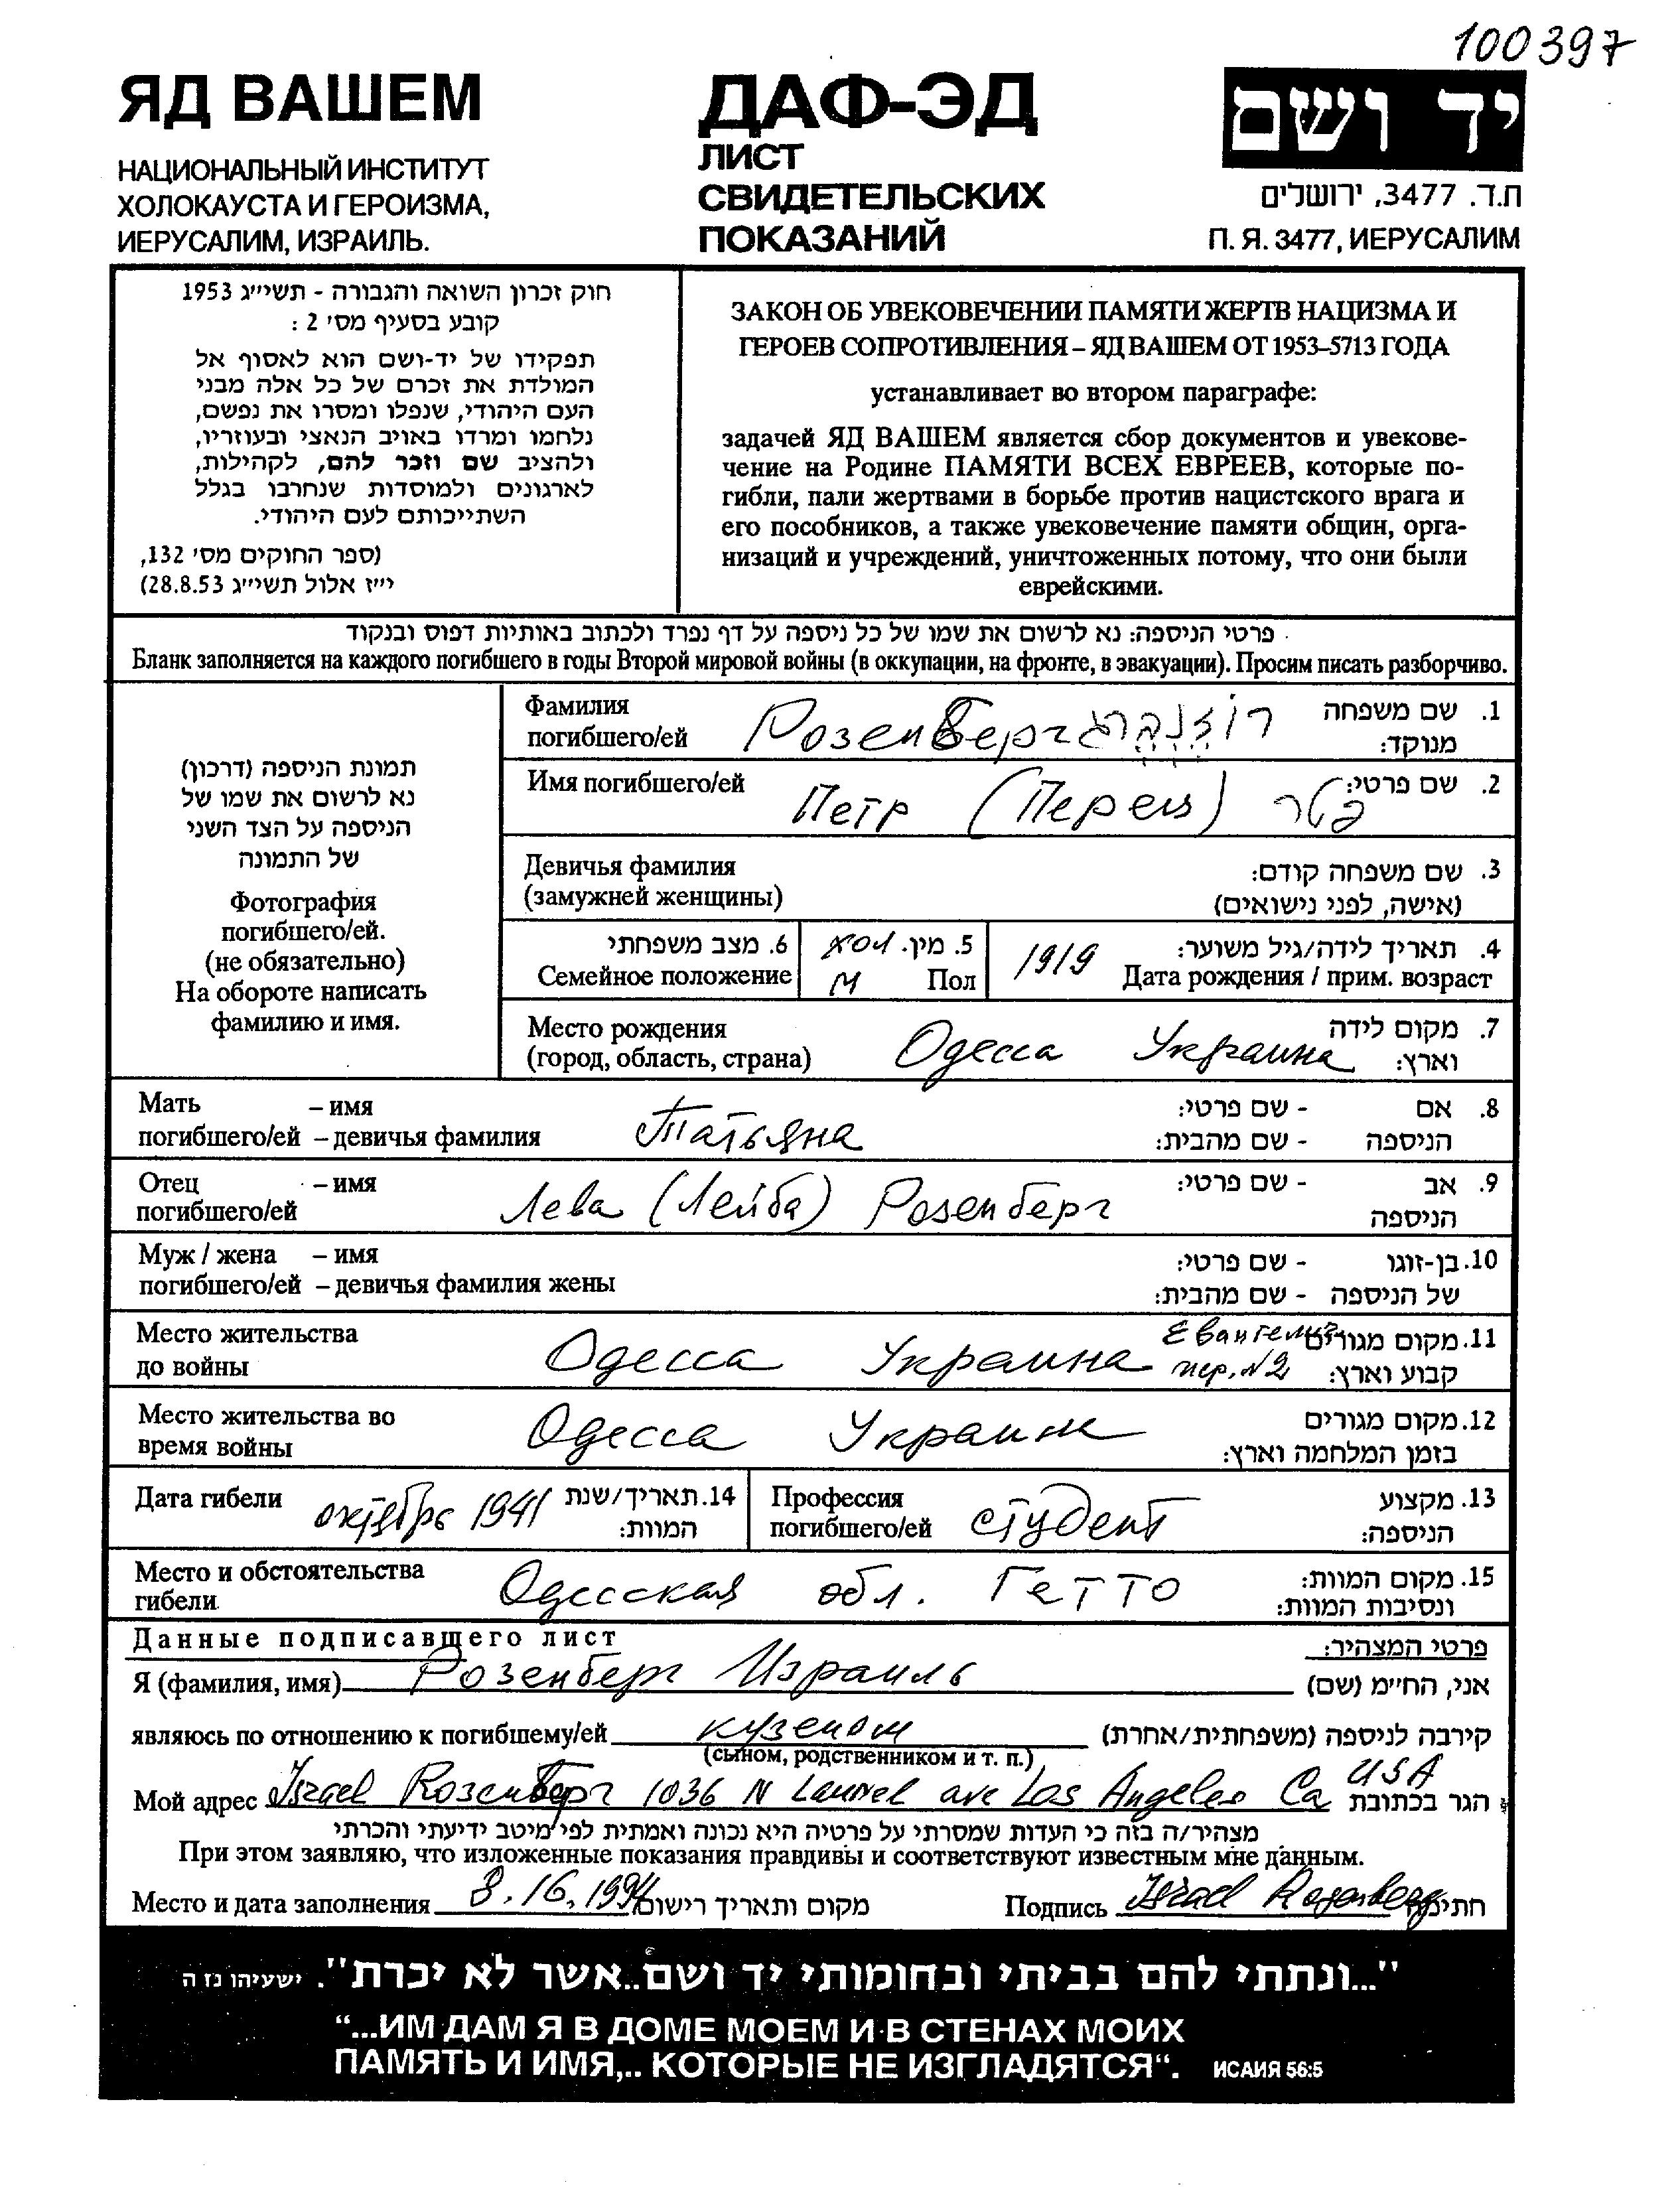 100397
ЯД ВАШЕМ
НАЦИОНАЛЬНЫЙ ИНСТИТУТ
ХОЛОКАУСТА И ГЕРОИЗМА,
ИЕРУСАЛИМ, ИЗРАИЛЬ.
ДАФ-ЭД
ЛИСТ
СВИДЕТЕЛЬСКИХ
ПОКАЗАНИЙ
יד ושם
ת.ד. 3477, ירושלים
П. Я. 3477, ИЕРУСАЛИМ
חוק זכרון השואה והגבורה - תשי״ג 1953
קובע בסעיף מס׳ 2 :
תפקידו של יד-ושם הוא לאסוף אל
המולדת את זכרם של כל אלה מבני
העם היהודי, שנפלו ומסרו את נפשם,
נלחמו ומרדו באויב הנאצי ובעוזריו,
ולהציב שם וזכר להם, לקהילות,
לארגונים ולמוסדות שנחרבו בגלל
השתייכותם לעם היהודי.
(ספר החוקים מס׳ 132,
י״ז אלול תשי״ג 28.8.53)
ЗАКОН ОБ УВЕКОВЕЧЕНИИ ПАМЯТИ ЖЕРТВ НАЦИЗМА И
ГЕРОЕВ СОПРОТИВЛЕНИЯ – ЯД ВАШЕМ ОТ 1953–5713 ГОДА
устанавливает во втором параграфе:
задачей ЯД ВАШЕМ является сбор документов и увекове-
чение на Родине ПАМЯТИ ВСЕХ ЕВРЕЕВ, которые по-
гибли, пали жертвами в борьбе против нацистского врага и
его пособников, а также увековечение памяти общин, орга-
низаций и учреждений, уничтоженных потому, что они были
еврейскими.
פרטי הניספה: נא לרשום את שמו של כל ניספה על דף נפרד ולכתוב באותיות דפוס ובנקוד
Бланк заполняется на каждого погибшего в годы Второй мировой войны (в оккупации, на фронте, в эвакуации). Просим писать разборчиво.
תמונת הניספה (דרכון)
נא לרשום את שמו של
הניספה על הצד השני
של התמונה
Фотография
погибшего/ей.
(не обязательно)
На обороте написать
фамилию и имя.
Фамилия
погибшего/ей Розенберг רוֹזֶנְבֶּרג
1. שם משפחה
מנוקד:
Имя погибшего/ей Петр (Перец) פטר 2. שם פרטי:
Девичья фамилия
(замужней женщины)
3. שם משפחה קודם:
(אישה, לפני נישואים)
6. מצב משפחתי
Семейное положение
5. מין. זכר
Пол М
4. תאריך לידה/גיל משוער:
1919 Дата рождения / прим. возраст
Место рождения
(город, область, страна) Одесса Украина
7. מקום לידה
וארץ:
Мать – имя
погибшего/ей – девичья фамилия Татьяна
8. אם - שם פרטי:
הניספה - שם מהבית:
Отец – имя
погибшего/ей Лева (Лейба) Розенберг
9. אב - שם פרטי:
הניספה
Муж / жена – имя
погибшего/ей – девичья фамилия жены
10. בן-זוגו - שם פרטי:
של הניספה - שם מהבית:
Место жительства
до войны Одесса Украина
пер. №2
11. מקום מגורים
קבוע וארץ:
Место жительства во
время войны Одесса Украина
12. מקום מגורים
בזמן המלחמה וארץ:
Дата гибели октябрь 1941
14. תאריך/שנת
המוות:
Профессия
погибшего/ей студент
13. מקצוע
הניספה:
Место и обстоятельства
гибели Одесская обл. Гетто
15. מקום המוות:
ונסיבות המוות:
Данные подписавшего лист פרטי המצהיר:
Я (фамилия, имя) Розенберг Израиль אני, הח״מ (שם)
являюсь по отношению к погибшему/ей кузеном קירבה לניספה (משפחתית/אחרת)
(сыном, родственником и т. п.)
Мой адрес Israel Rosenберг 1036 N Laurel ave Los Angeles Ca USA הגר בכתובת
מצהיר/ה בזה כי העדות שמסרתי על פרטיה היא נכונה ואמתית לפי מיטב ידיעתי והכרתי
При этом заявляю, что изложенные показания правдивы и соответствуют известным мне данным.
Место и дата заполнения 8.16,1994 מקום ותאריך רישום Подпись Israel Rosenberg חתימה
"...ונתתי להם בביתי ובחומותי יד ושם...אשר לא יכרת". ישעיהו נו ה
“...ИМ ДАМ Я В ДОМЕ МОЕМ И В СТЕНАХ МОИХ
ПАМЯТЬ И ИМЯ,.. КОТОРЫЕ НЕ ИЗГЛАДЯТСЯ“. ИСАИЯ 56:5